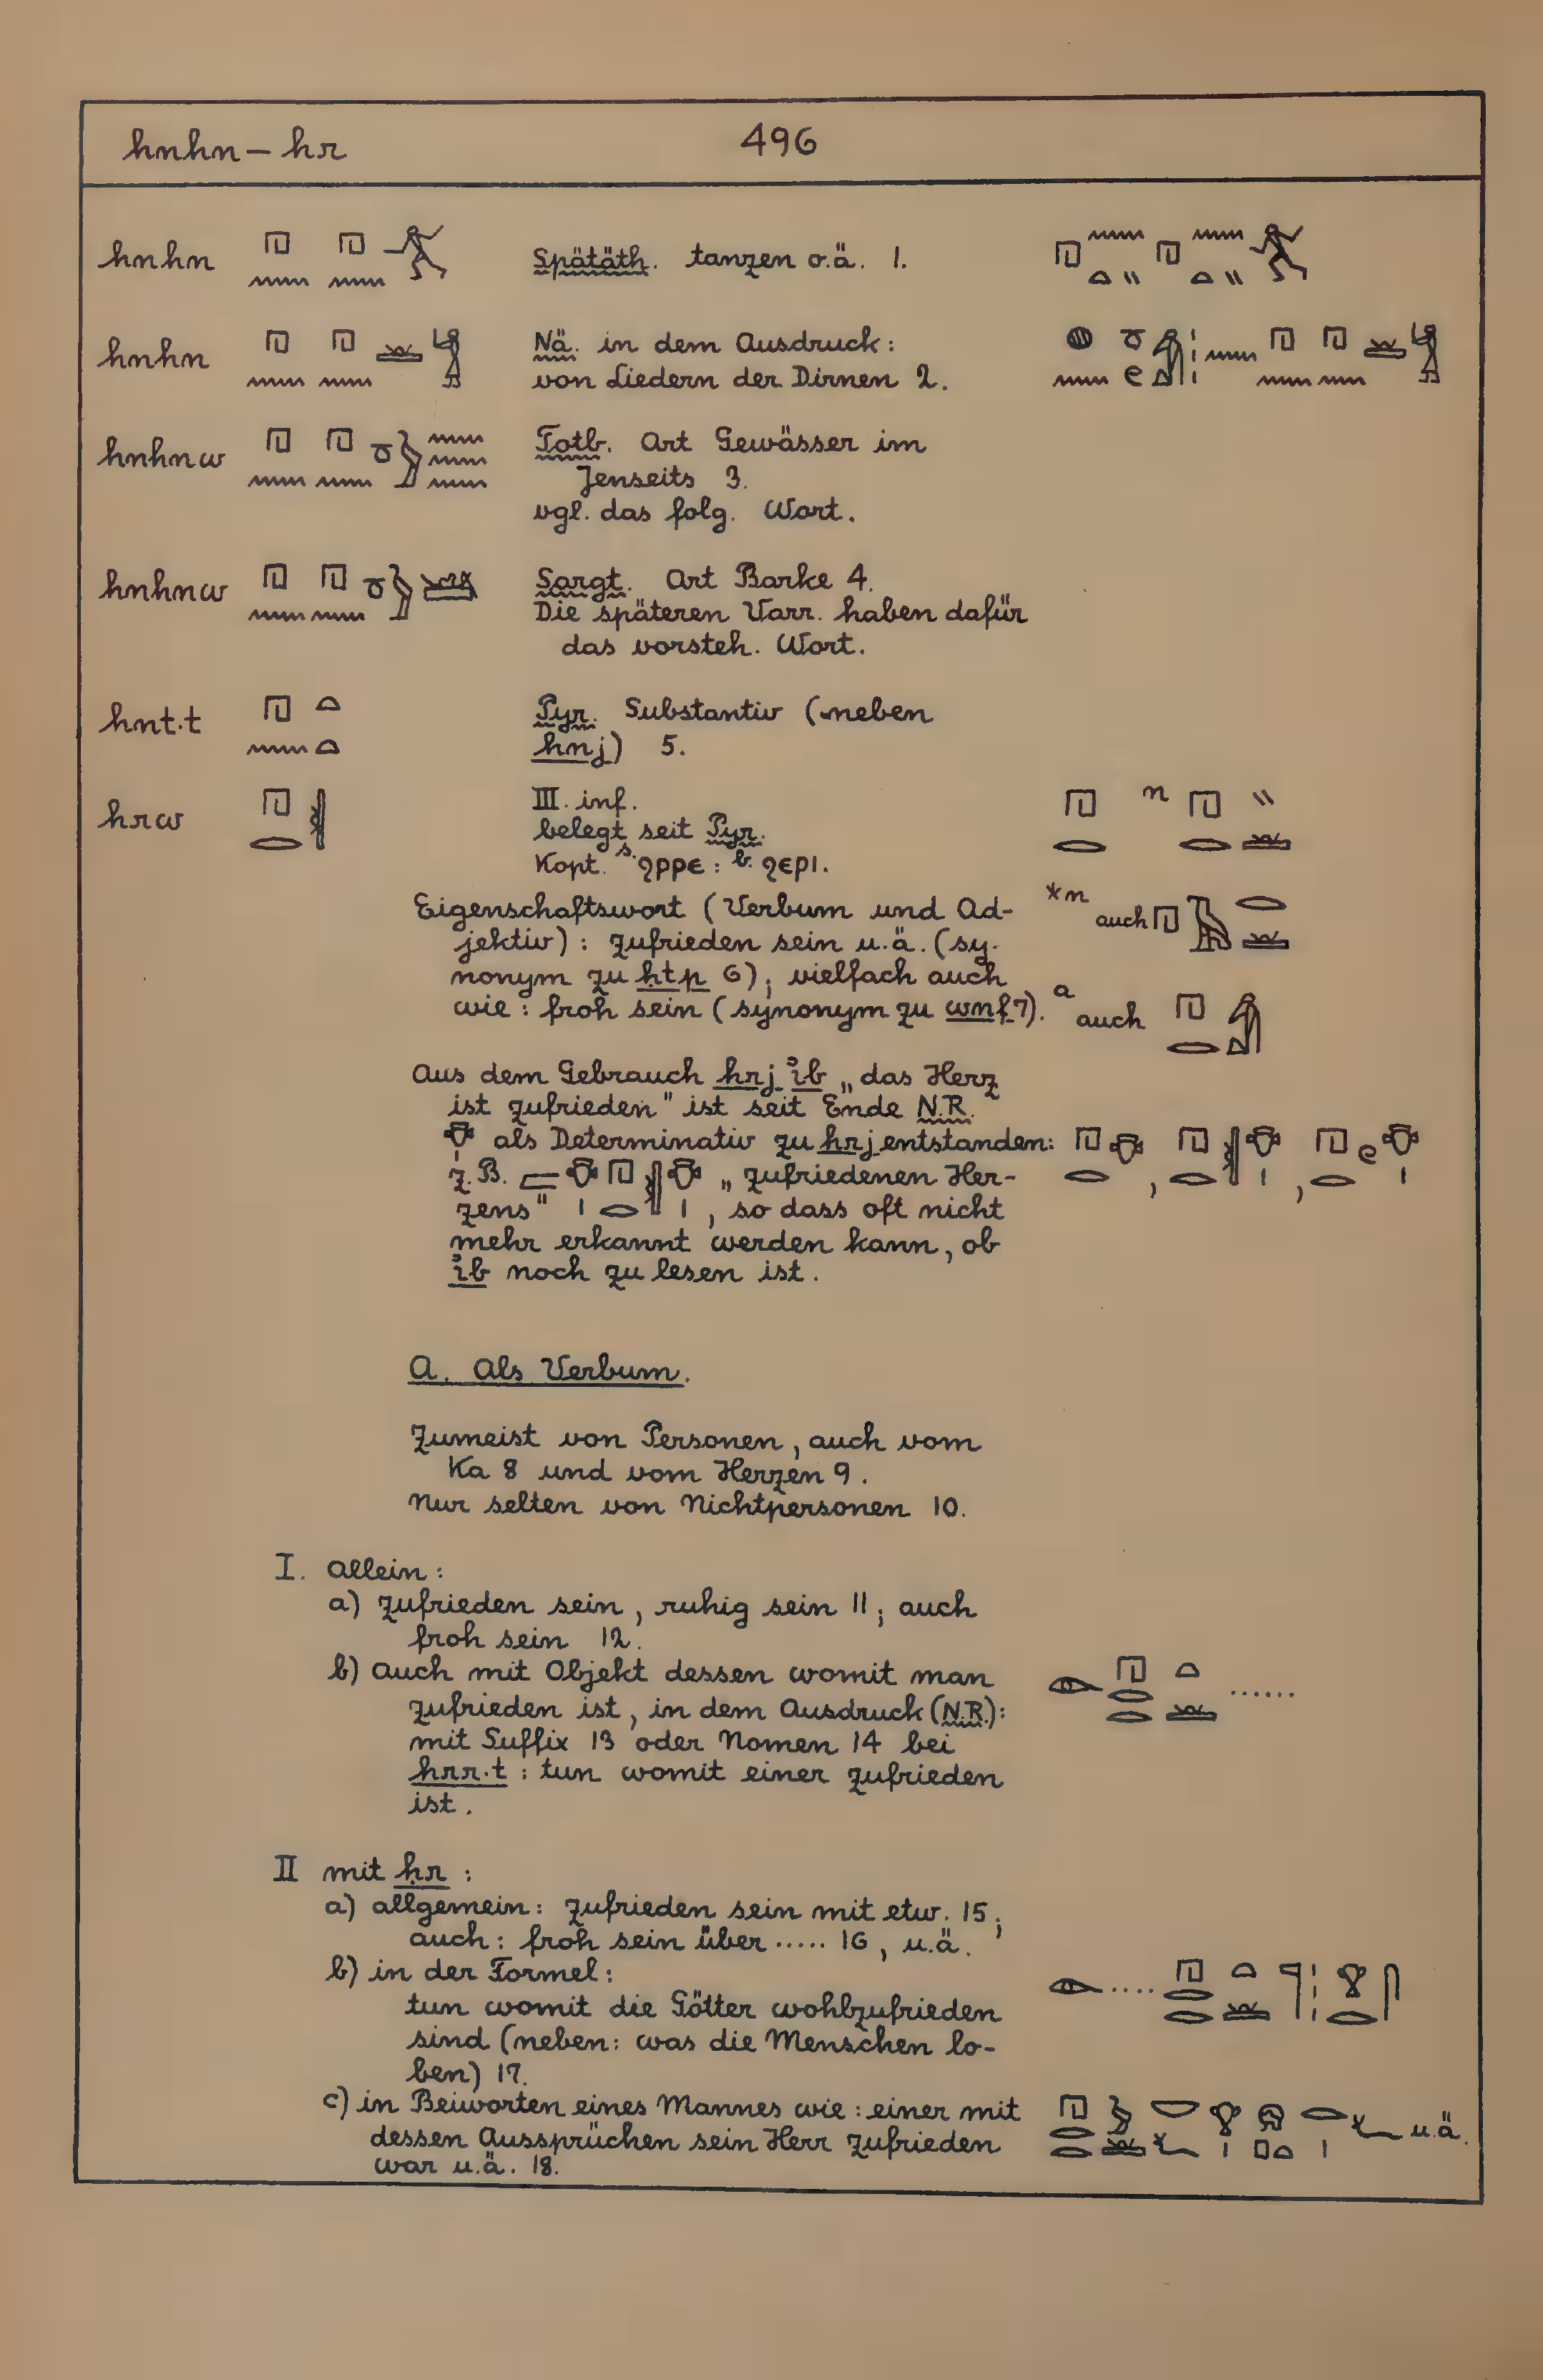 hnhn – hr 496
hnhn Spätäth. tanzen o.ä. 1.
hnhn Nä. in dem Ausdruck:
von Liedern der Dirnen 2.
hnhnw Totb. Art Gewässer im
Jenseits 3.
vgl. das folg. Wort.
hnhnw Sargt. Art Barke 4.
Die späteren Varr. haben dafür
das vorsteh. Wort.
hnt.t Pyr. Substantiv (neben
hnj) 5.
hrw III. inf.
belegt seit Pyr.
Kopt. s. ϩⲣⲣⲉ : b. ϩⲉⲣⲓ.
Eigenschaftswort (Verbum und Ad-
jektiv) : zufrieden sein u.ä. (sy-
auch
nonym zu ḥtp 6); vielfach auch
wie : froh sein (synonym zu wnf 7).
auch
Aus dem Gebrauch hrj ỉb „das Herz
ist zufrieden" ist seit Ende N.R.
als Determinativ zu hrj entstanden:
z.B. „zufriedenen Her-
zens", so dass oft nicht
mehr erkannt werden kann, ob
ỉb noch zu lesen ist.
A. Als Verbum.
Zumeist von Personen, auch vom
Ka 8 und vom Herzen 9.
Nur selten von Nichtpersonen 10.
I. allein:
a) zufrieden sein, ruhig sein 11; auch
froh sein 12.
b) auch mit Objekt dessen womit man
zufrieden ist, in dem Ausdruck (N.R.): ......
mit Suffix 13 oder Nomen 14 bei
hrr.t : tun womit einer zufrieden
ist.
II mit ḥr :
a) allgemein: zufrieden sein mit etw. 15;
auch: froh sein über ..... 16, u.ä.
b) in der Formel: ....
tun womit die Götter wohlzufrieden
sind (neben: was die Menschen lo-
ben) 17.
c) in Beiworten eines Mannes wie : einer mit
dessen Aussprüchen sein Herr zufrieden u.ä.
war u.ä. 18.